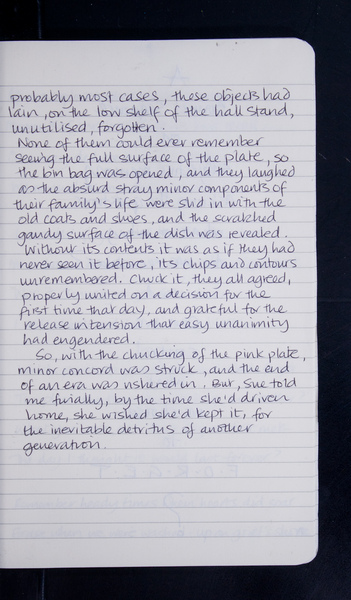 probably most cases, these objects had
lain, on the low shelf of the hall stand,
unutilised, forgotten.
None of them could ever remember
seeing the full surface of the plate, so
the bin bag was opened, and they laughed
as the absurd stray minor components of
their family's life were slid in with the
old coats and shoes, and the scratched
gaudy surface of the dish was revealed.
Without its contents it was as if they had
never seen it before, its chips and contours
unremembered. Chuck it, they all agreed,
properly united on a decision for the
first time that day, and grateful for the
release in tension that easy unanimity
had engendered.
So, with the chucking of the pink plate,
minor concord was struck, and the end
of an era was ushered in. But, Sue told
me, by the time she'd driven
home, she wished she'd kept it, for
the inevitable detritus of another
generation.